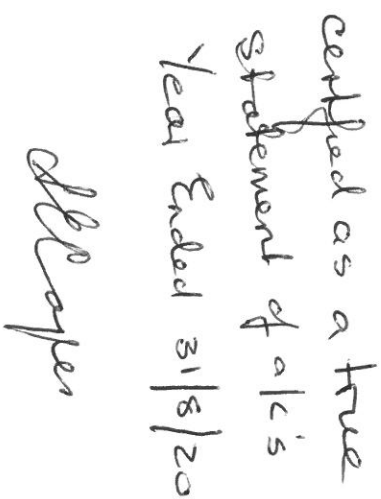 certified as a true
statement of a/c's
Year Ended 31/8/20